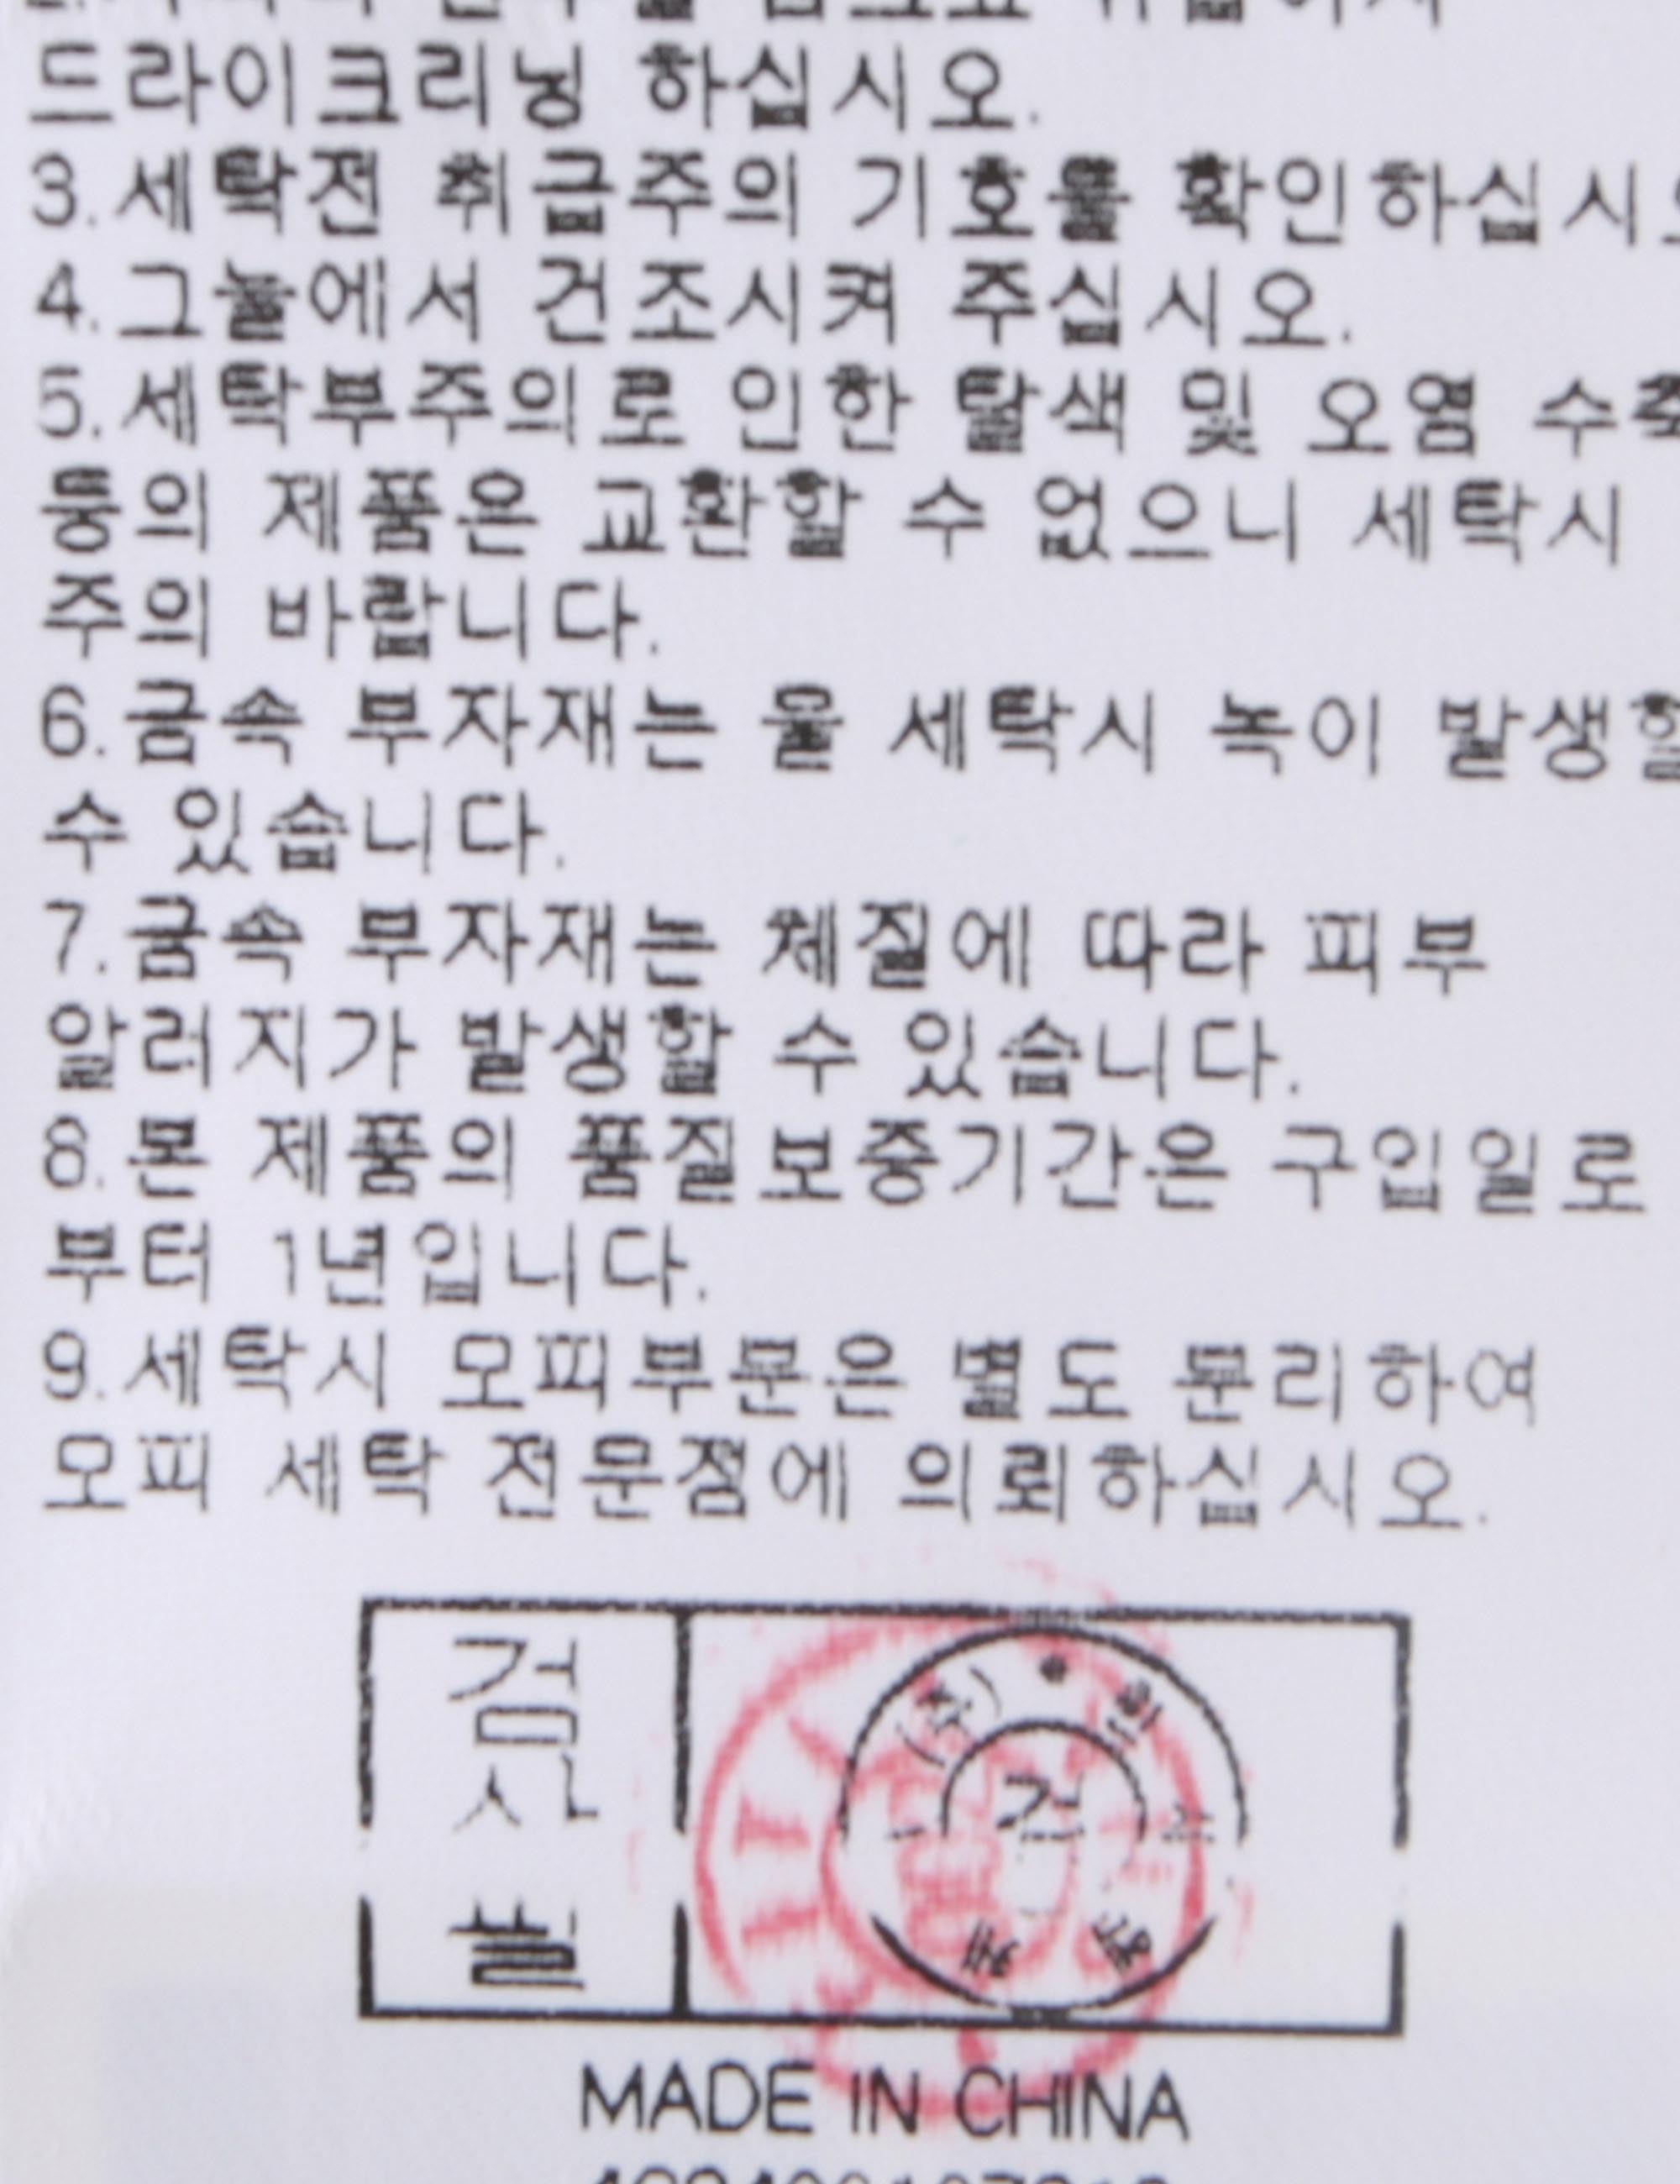 드라이크리닝 하십시오.
3.세탁전 취급주의 기호를 확인하십시오
4.그늘에서 건조시켜 주십시오.
5.세탁부주의로 인한 탈색 및 오염 수축
등의 제품은 교환할 수 없으니 세탁시
주의 바랍니다.
6.금속 부자재는 물 세탁시 녹이 발생할
수 있습니다.
7.금속 부자재는 체질에 따라 피부
알러지가 발생할 수 있습니다.
8.본 제품의 품질보증기간은 구입일로
부터 1년입니다.
9.세탁시 모피부분은 별도 분리하여
모피 세탁 전문점에 의뢰하십시오.
검사필
(주)
MADE IN CHINA